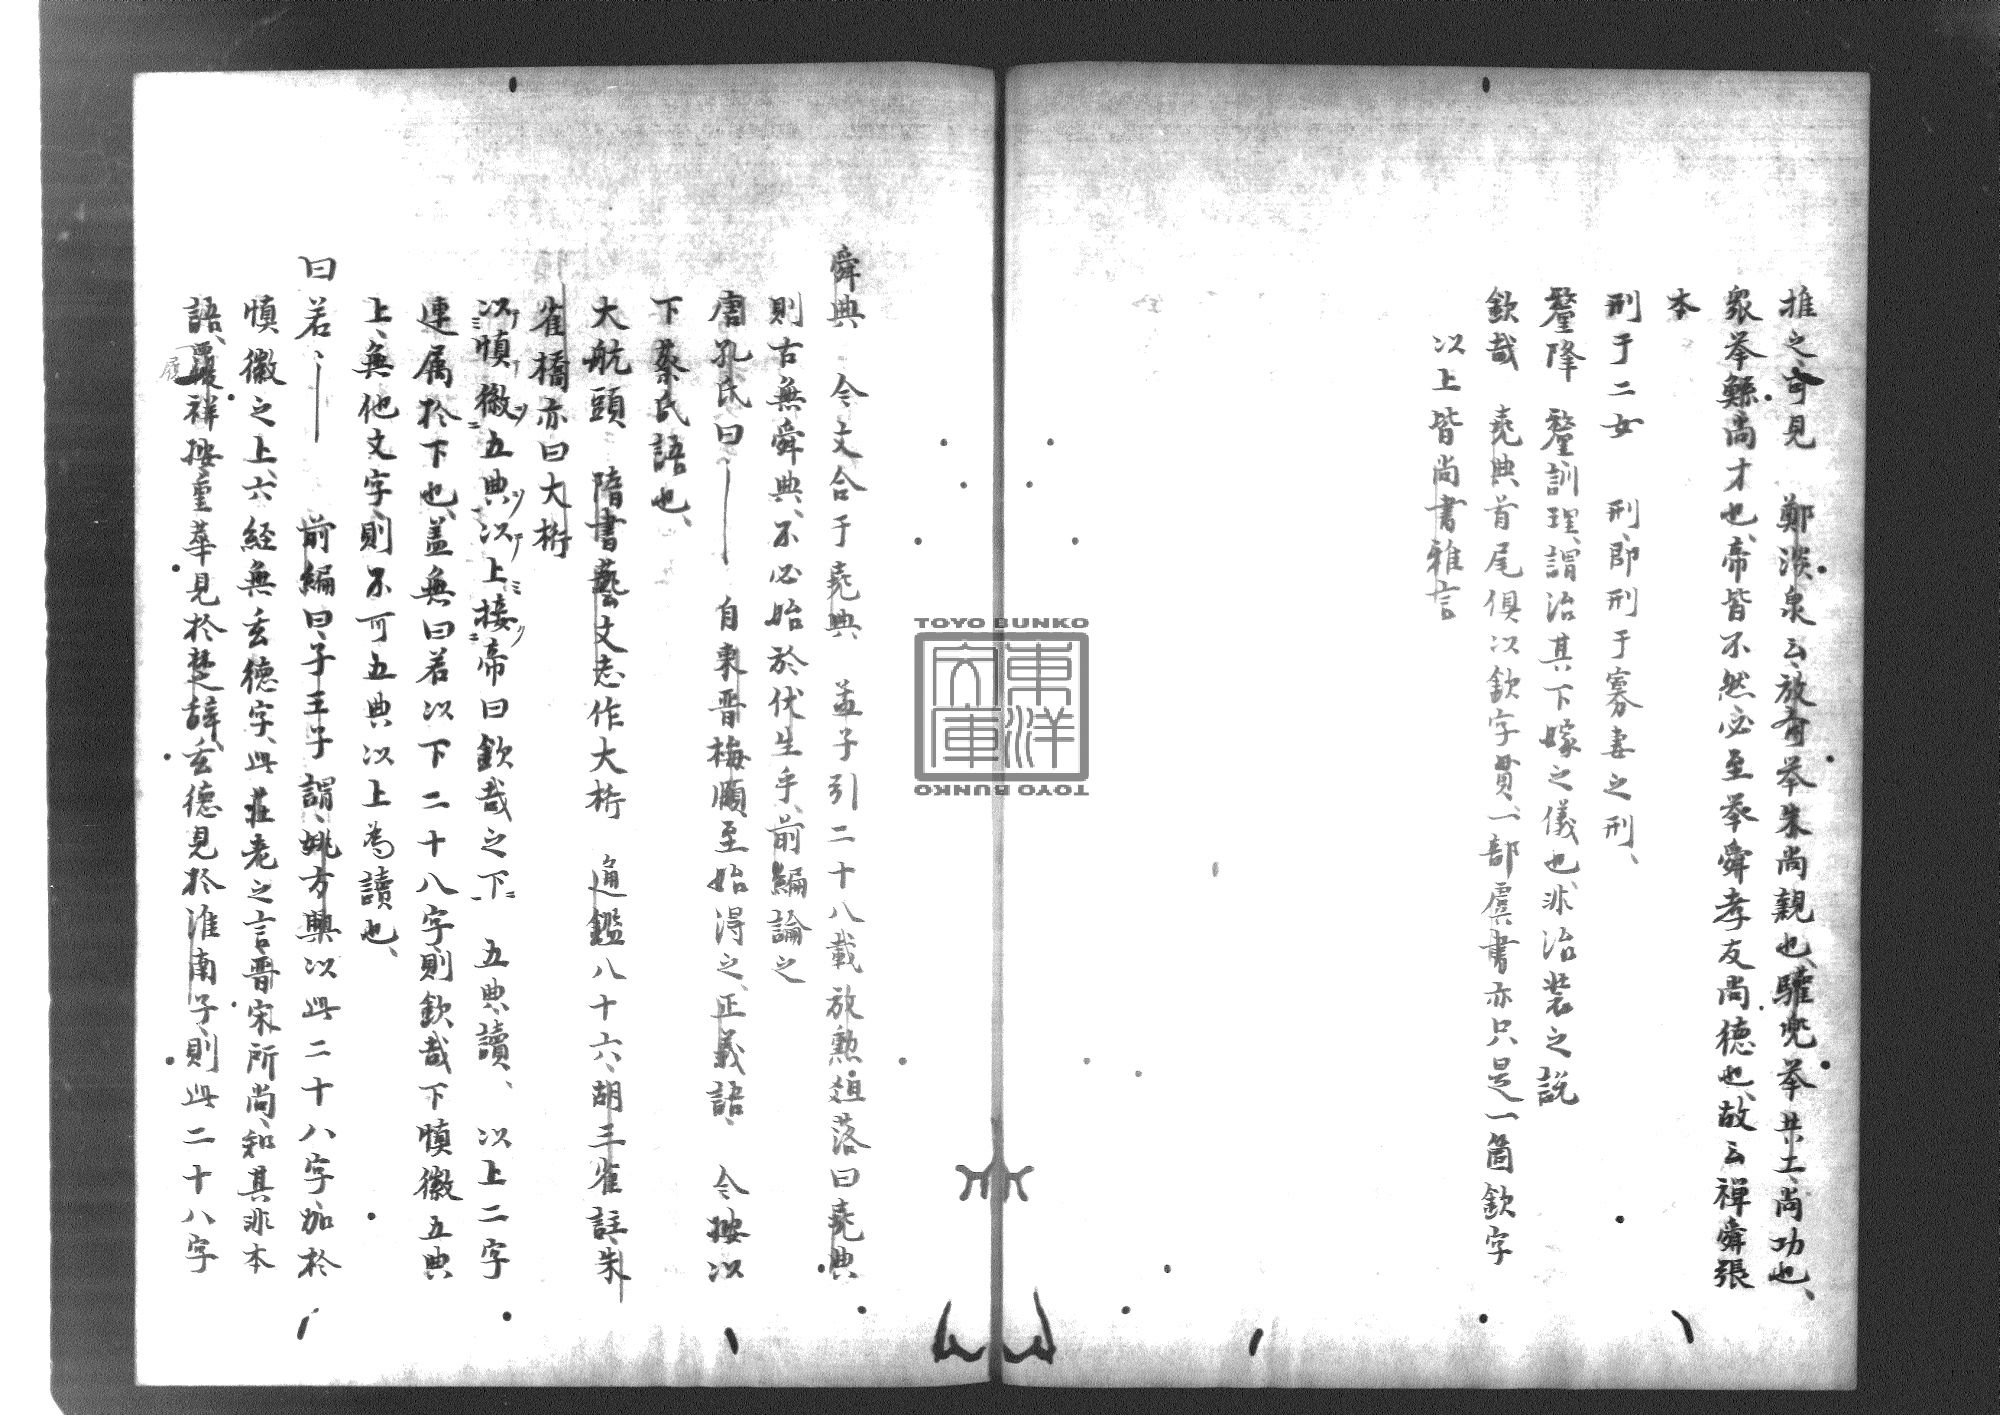 推之可見　鄭淡泉云、放齊举朱尚親也、驩兜举共工、尚功也、
衆举鯀尚才也、帝皆不然、必至举舜孝友尚德也、故云禅舜張
本
刑于二女　刑、即刑于寡妻之刑、
釐降　釐訓理、謂治其下嫁之儀也、非治装之説
欽哉　堯典首尾俱以欽字貫、一部虞書亦只是一箇欽字
以上皆尚書雅言
舜典　今文合于堯典　孟子引二十八載放勲殂落曰堯典
則古無舜典、不必始於伏生乎、前編論之
唐孔氏曰——　自東晋梅頤至始得之、正義語、　今按以
下蔡氏語也、
大航頭　隋書藝文志作大桁　通鑑八十六、胡三雀註、朱
雀橋亦曰大桁
以慎徽五典以上接帝曰欽哉之下　五典、讀、　以上二字
連属於下也、盖無曰若以下二十八字、則欽哉下慎徽五典
上、無他文字、則不可五典以上為讀也、
曰若、——　前編曰、子王子謂、姚方興以此二十八字、加於
慎徽之上、六経無玄德字、此荘老之言、晋宋所尚、知其非本
語、履祥按重華見於楚辞、玄德見於淮南子、則此二十八字
履
TOYO BUNKO
東洋文庫
TOYO BUNKO